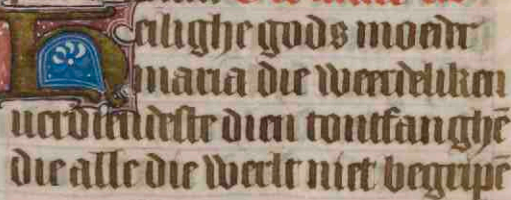 Heilighe gods moedr
maria die weerdeliken
verdiendeste dien tontfanghē
die alle die werlt niet begripē